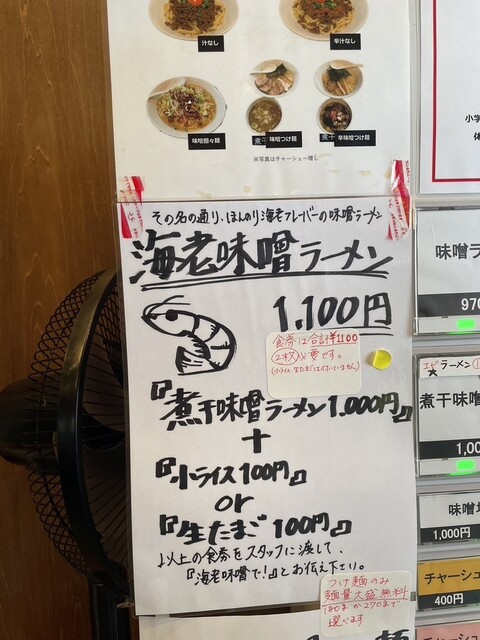 汁なし
辛汁なし
味噌担々麺
味噌つけ麺
辛味噌つけ麺
※写真はチャーシュー増し
その名の通り、ほんのり海老フレーバーの味噌ラーメン
海老味噌ラーメン
1,100円
食券は合計¥1100
2枚必要です。
(小ライス、生たまごは付いていません)
『煮干味噌ラーメン1.000円』
+
『小ライス100円』
or
『生たまご100円』
以上の食券をスタッフに渡して、
『海老味噌で!』とお伝え下さい。
つけ麺のみ
麺量大盛無料
180gか270まで
選べます
味噌ラ
970
エビラーメン①
★
煮干味噌
1,00
味噌
1,000円
チャーシュ
400円